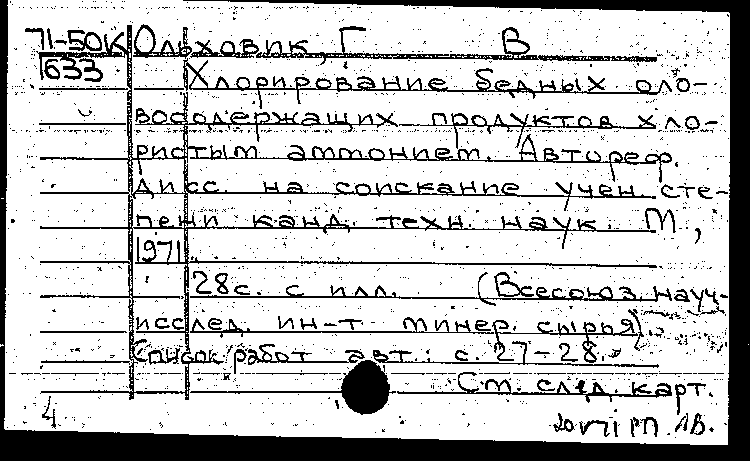 71-50К Ольховик, Г В
1633 Хлорирование бедных оло-
восодержащих продуктов хло-
ристым аммонием. Автореф.
дисс. на соискание учен. сте-
пени канд. техн. наук. М,
1971.
28с. с илл. (Всесоюз. науч-
исслед. ин-т минер. сырья).
Список работ авт.: с. 27-28.
См. след. карт.
4